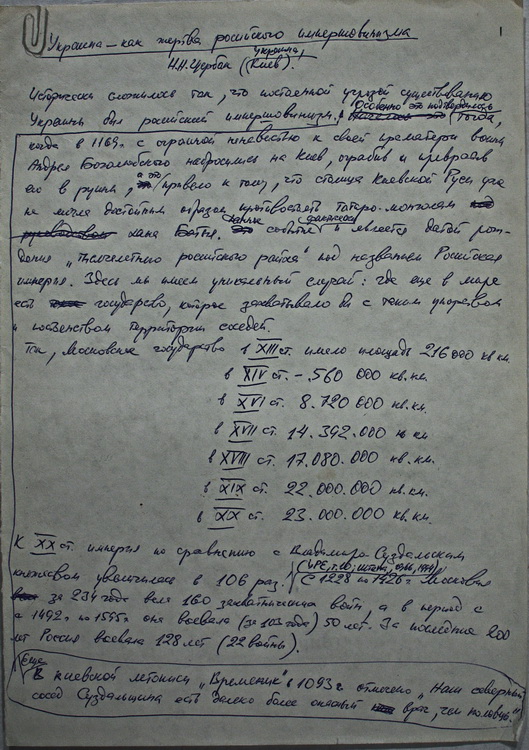 1
Украина – как жертва росийского империовинизма
Н.Н. Щербак (Киев)
украина,
Исторически сложилось так, что постоянной угрозой существованию
Украины был росийский империовинизм. Особенно это подтвердилось тогда,
когда в 1169 г. с огромной ненавистью к своей праматери воины
Андрея Боголюбского набросились на Киев, ограбив и превратив
его в руины, а это привело к тому, что столица Киевской Руси уже
не могла достойным образом противостоять татаро-монголам
хана Батыя. событие и является датой рож-
дения „тысячелетнего росийского райха" под названием Росийская
империя. Здесь мы имеем уникальный случай: где еще в мире
есть государство, которое захватывало бы с таким упорством
и постоянством территории соседей.
Так, Московское государство в XIII ст. имело площадь 216 000 кв. км.
в XIV ст. – 560 000 кв. км.
в XVI ст. 8.720.000 кв. км.
в XVII ст. 14.392.000 кв км
в XVIII ст. 17.080.000 кв. км.
в XIX ст. 22.000.000 кв. км.
в XX ст. 23.000.000 кв. км.
К XX ст. империя по сравнению с Владимиро-Суздальским
княжеством увеличилась в 106 раз. С 1228 по 1426 г. Московия
за 234 года вела 160 захватнических войн, а в период с
с 1492 по 1595 г. она воевала (за 103 года) 50 лет. За последние 200
лет Россия воевала 128 лет (22 войны).
Еще
В киевской летописи „Временик" в 1093 г. отмечено „Наш северный
сосед Суздальщина есть далеко более опасный враг, чем половцы."